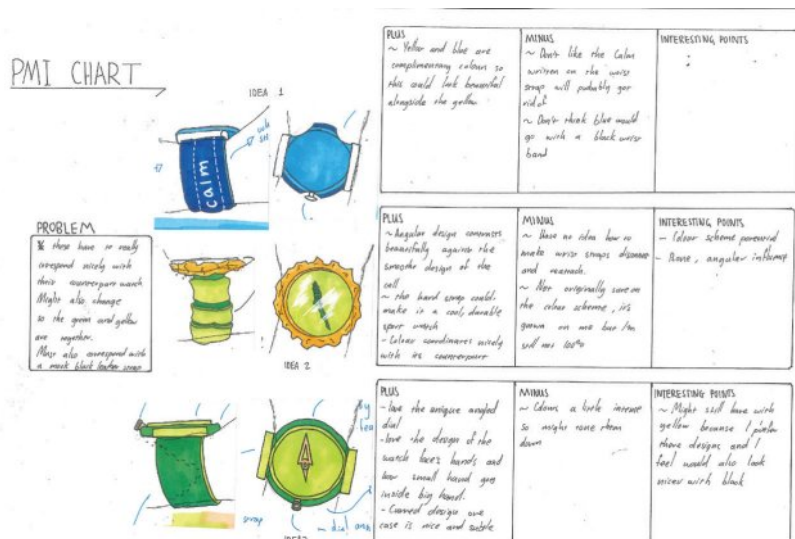 PMI CHART
IDEA 1
calm
PROBLEM
these have to really
correspond nicely with
their counterpart watch
Might also change
so the green and yellow
are together.
Must also correspond with
a mock black leather strap
IDEA 2
strap
dial
PLUS
~ Yellow and blue are
complimentary colours so
this could look beautiful
alongside the yellow
MINUS
~ Don't like the Calm
written on the wrist
strap will probably get
rid of
~ Don't think blue would
go with a black wrist
band
INTERESTING POINTS
PLUS
~ Angular design contrasts
beautifully against the
smooth design of the
~ the hard strap could
make it a cool, durable
sport watch
- Colour coordinates nicely
with its counterpart
MINUS
~ Have no idea how to
make wrist straps disconnect
and reattach.
~ Not originally sure on
the colour scheme, it's
grown on me but I'm
still not 100%
INTERESTING POINTS
- Colour scheme potential
- angular influence
PLUS
- love the unique angled
dial
- love the design of the
watch face's hands and
how small hand goes
inside big hand.
- Curved design one
case is nice and subtle
MINUS
~ Colours a little intense
so might tone them
down
INTERESTING POINTS
~ Might still have with
yellow because I prefer
these designs, and I
feel would also look
nicer with black